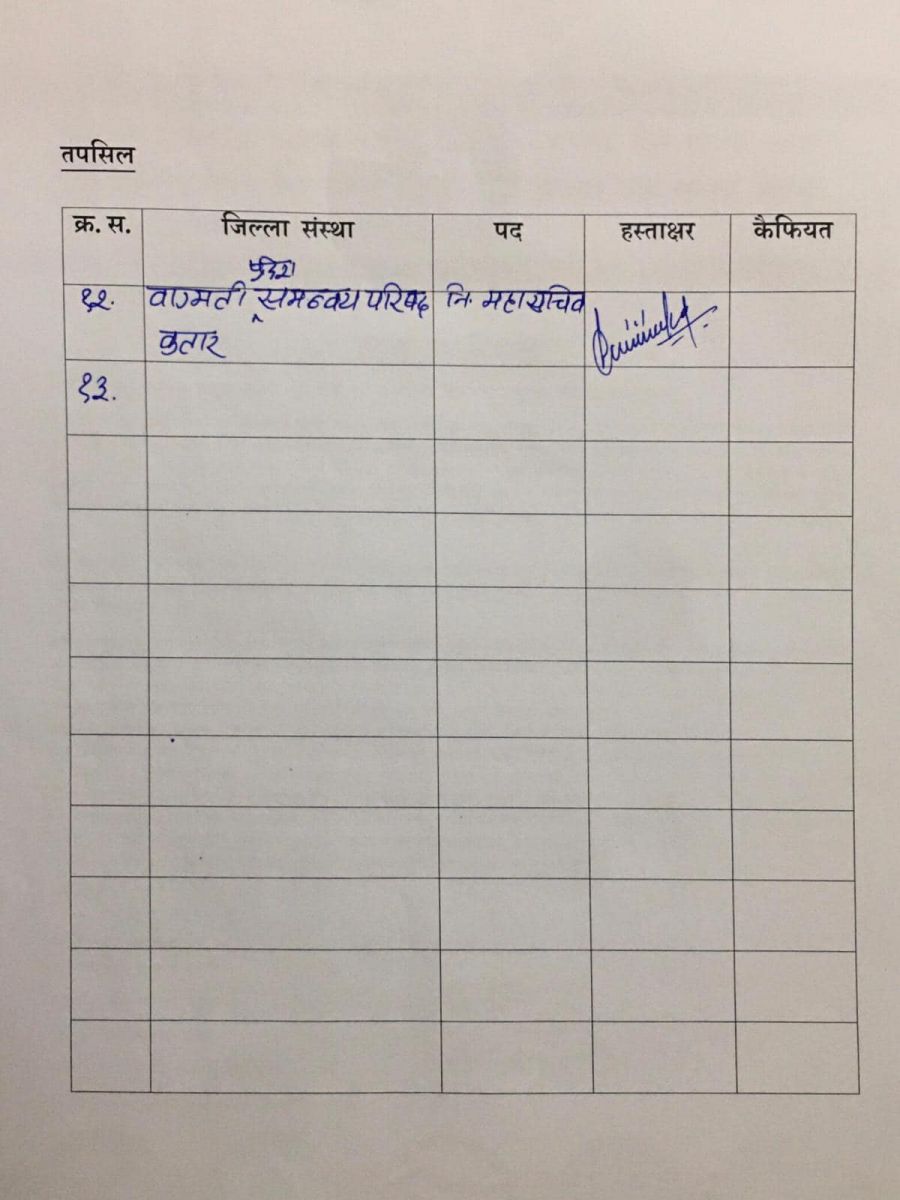 तपसिल
क्र. स. जिल्ला संस्था पद हस्ताक्षर कैफियत
प्रदेश
१२. वाग्मती समन्वय परिषद नि. महासचिव
कतार
१३.